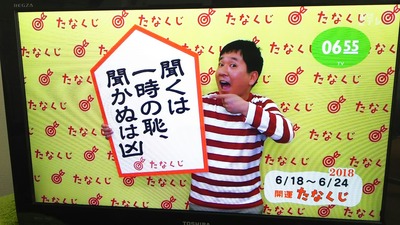 REGZA
0655
TV
聞くは
一時の恥
聞かぬは凶
たなくじ
2018
6/18～6/24
開運 たなくじ
たなくじ
たなくじ
たなくじ
たなくじ
たなくじ
たなくじ
TOSHIBA